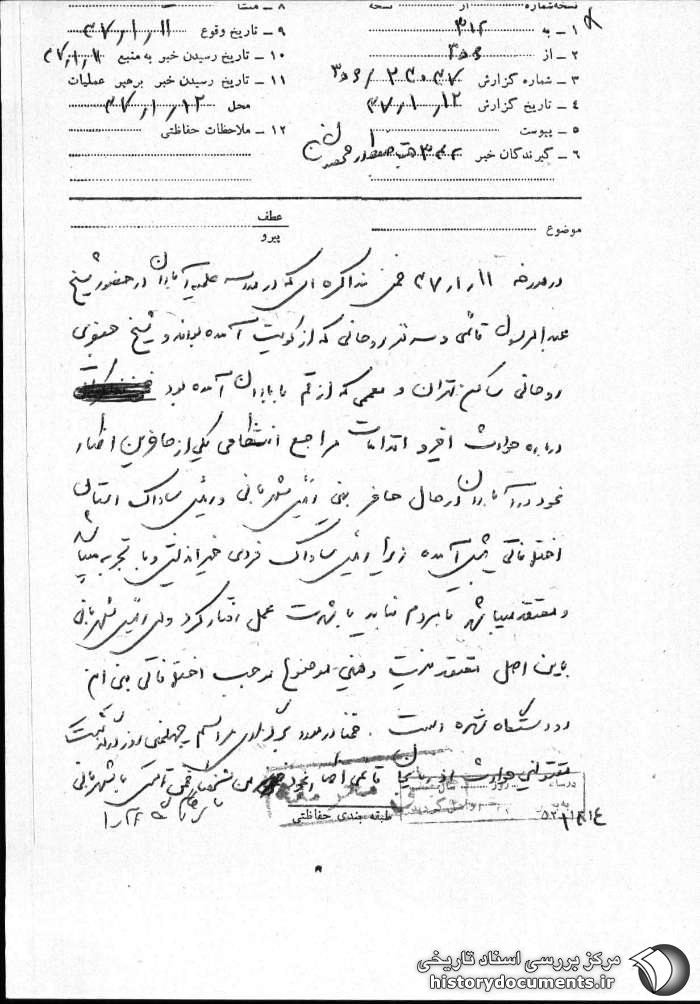 نسخه شماره از نسخه
۱ – به ۳۱۲
۲ – از ۳۵۶
۳ – شماره گزارش
۴ – تاریخ گزارش ۳۷٫۱٫۱۲
۵ – پیوست
۶ – گیرندگان خبر
۸ – منشأ
۹ – تاریخ وقوع ۳۷٫۱٫۱۱
۱۰ – تاریخ رسیدن خبر به منبع ۳۷٫۱٫۱۱
۱۱ – تاریخ رسیدن خبر برهبر عملیات
محل ۳۷٫۱٫۱۲
۱۲ – ملاحظات حفاظتی
موضوع
عطف
پیرو
در مورخه ۳۷٫۱٫۱۱ ضمن مذاکره‌ای که در مدرسه علمیه آبادان در حضور شیخ
عبدالرسول قائمی و سه نفر روحانی که از کویت آمده بودند و شیخ
روحانی ساکن تهران و معممی که از قم بآبادان آمده بود
درباره حوادث اخیر و اقدامات مراجع انتظامی یکی از حاضرین اظهار
نمود در آبادان در حال حاضر بین رئیس شهربانی و رئیس ساواک
اختلافاتی پیش آمده زیرا رئیس ساواک فردی خیراندیش و با تجربه میباشد
و معتقد میباشد با مردم نباید با شدت عمل رفتار کرد ولی رئیس شهربانی
باین اصل معتقد نیست و همین موضوع موجب اختلافاتی بین این
دو دستگاه شده است . ضمناً در مورد برگزاری مراسم چهلمین روز درگذشت
مقتولین حوادث قائمی اظهار نمود ضمن تماس با شهربانی
طبقه بندی حفاظتی
مرکز بررسی اسناد تاریخی
historydocuments.ir